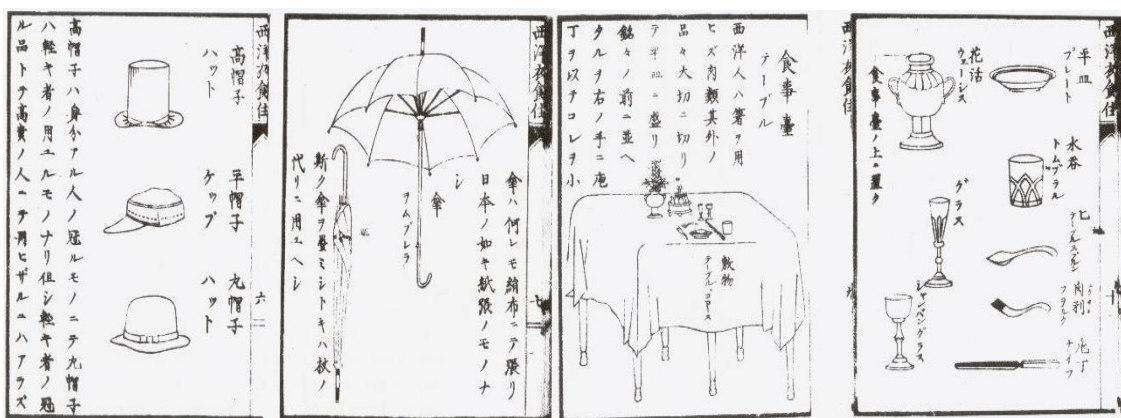 西洋衣食住
六
高帽子
ハット
平帽子
ケップ
丸帽子
ハット
高帽子ハ身分アル人ノ冠ルモノニテ丸帽子
ハ軽キ者ノ用ユルモノナリ但シ軽キ者ノ冠
ル品トテ高貴ノ人ニテ用ヒザルニハアラズ
西洋衣食住
七
傘ハ何レモ絹布ニテ張リ
日本ノ如キ紙張ノモノナ
シ
傘
ヲムブレラ
斯ク傘ヲ畳ミシトキハ杖ノ
代リニ用ユヘシ
西洋衣食住
食事臺
テーブル
西洋人ハ箸ヲ用
ヒズ肉類其外ノ
品々大切ニ切リ
テ平皿ニ盛リ
銘々ノ前ニ並ヘ
タルヲ右ノ手ニ庖
丁ヲ以テコレヲ小
敷物
テーブルコロース
西洋衣食住
十
平皿
プレート
水呑
トムブラル
匕
テーブルスプルン
肉刺
フヲルク
庖丁
ナイフ
花活
ウェーシス
グラス
シャンペングラス
食事臺ノ上ニ置ク